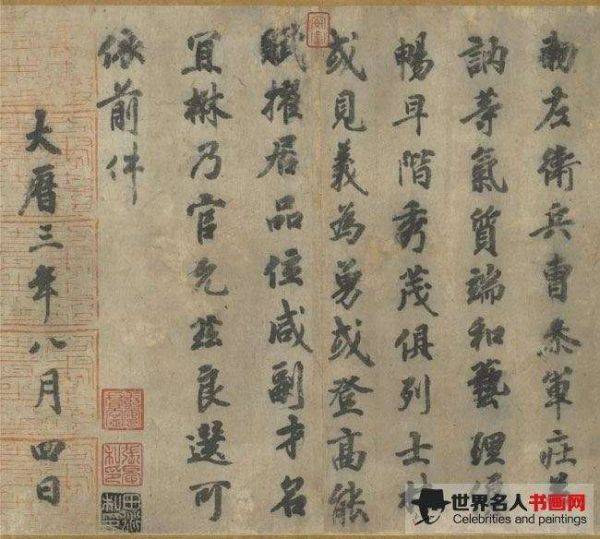 勑左衛兵曹叅軍莊若
訥等氣質端和藝理優
暢早階秀茂俱列士林
或見義為勇或登高能
賦擢居品位咸副才名
宜楙乃官允茲良選可
依前件
大曆三年八月四日
世界名人书画网
Celebrities and paintings